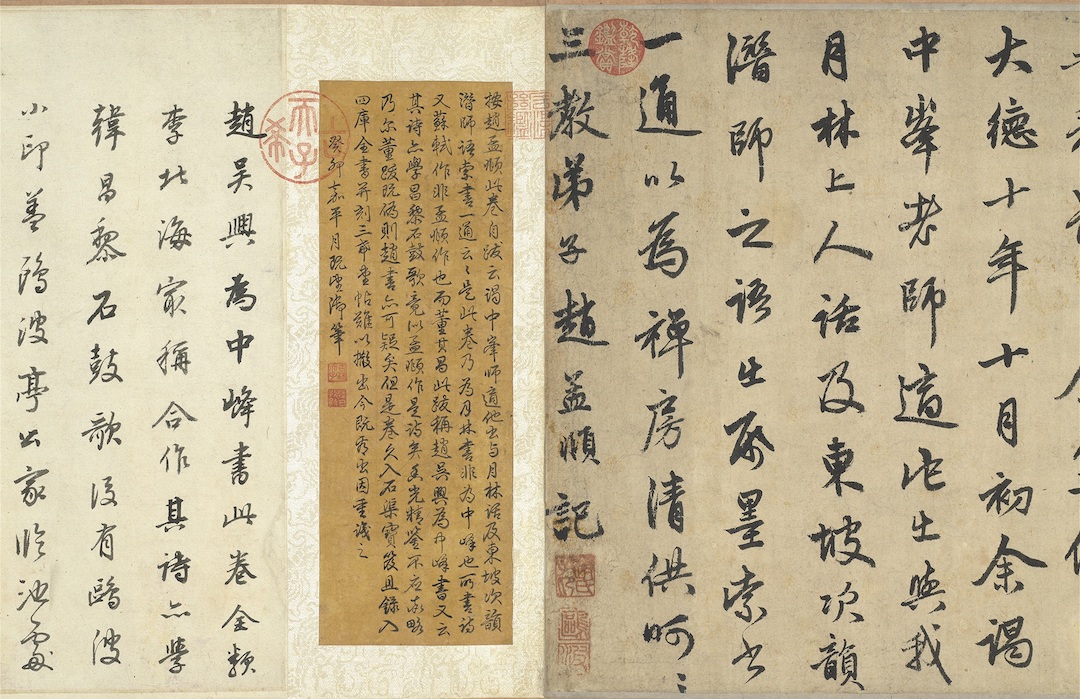 大德十年十月初余謁
中峯老師適他出與我
月林上人話及東坡次韻
潛師之語出紙墨索書
一通以為禪房清供呵〻
三教弟子趙孟頫記
鷗波
乾隆鑑賞
按趙孟頫此卷自跋云謁中峯師適他出與月林話及東坡次韻
潛師語索書一通云〻是此卷乃為月林書非為中峰也所書詩
又蘇軾作非孟頫作也而董其昌此跋稱趙吳興為中峰書又云
其詩亦學昌黎石鼓歌竟以孟頫作是詩矣香光精鑒不應疎略
乃尔董跋既偽則趙書亦可疑矣但是卷久入石渠寶笈且錄入
四庫全書并刻三希堂帖難以撤出今既看出因重識之
癸卯嘉平月既望御筆
古希天子
趙吳興為中峰書此卷全類
李北海最稱合作其詩亦學
韓昌黎石鼓歌後有鷗波
小印蓋鷗波亭公家臨池處